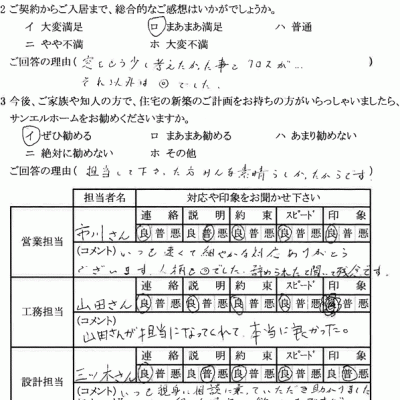 2 ご契約からご入居まで、総合的なご感想はいかがでしょうか。
イ 大変満足 ロ まあまあ満足 ハ 普通
ニ やや不満 ホ 大変不満
ご回答の理由( 窓をもう少し考えたかった事とクロスが…
それ以外は◎でした。 )
3 今後、ご家族や知人の方で、住宅の新築のご計画をお持ちの方がいらっしゃいましたら、
サンエルホームをお勧めくださいますか。
イ ぜひ勧める ロ まあまあ勧める ハ あまり勧めない
ニ 絶対に勧めない ホ その他
ご回答の理由( 担当して下さった方みんな素晴らしかったからです! )
担当者名 対応や印象をお聞かせ下さい
営業担当 市川さん 連絡 説明 約束 スピード 印象
良普悪 良普悪 良普悪 良普悪 良普悪
(コメント) いつも速くて細やかな対応ありがとう
ございます。人柄も◎でした。辞められたと聞いて残念です。
工務担当 山田さん 連絡 説明 約束 スピード 印象
良普悪 良普悪 良普悪 良普悪 普悪
(コメント)
山田さんが担当になってくれて、本当に良かった。
設計担当 三ツ木さん 連絡 説明 約束 スピード 印象
良普悪 良普悪 良普悪 良普悪 良普悪
(コメント) いつも親身に相談に乗っていただき助かりました